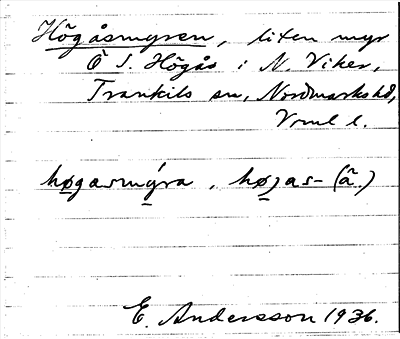 Högåsmyren, liten myr
Ö S. Högås i N. Viker,
Trankils sn, Nordmarks hd,
Vrml l.
høgasmýra, højas- (ã.)
E. Andersson 1936.